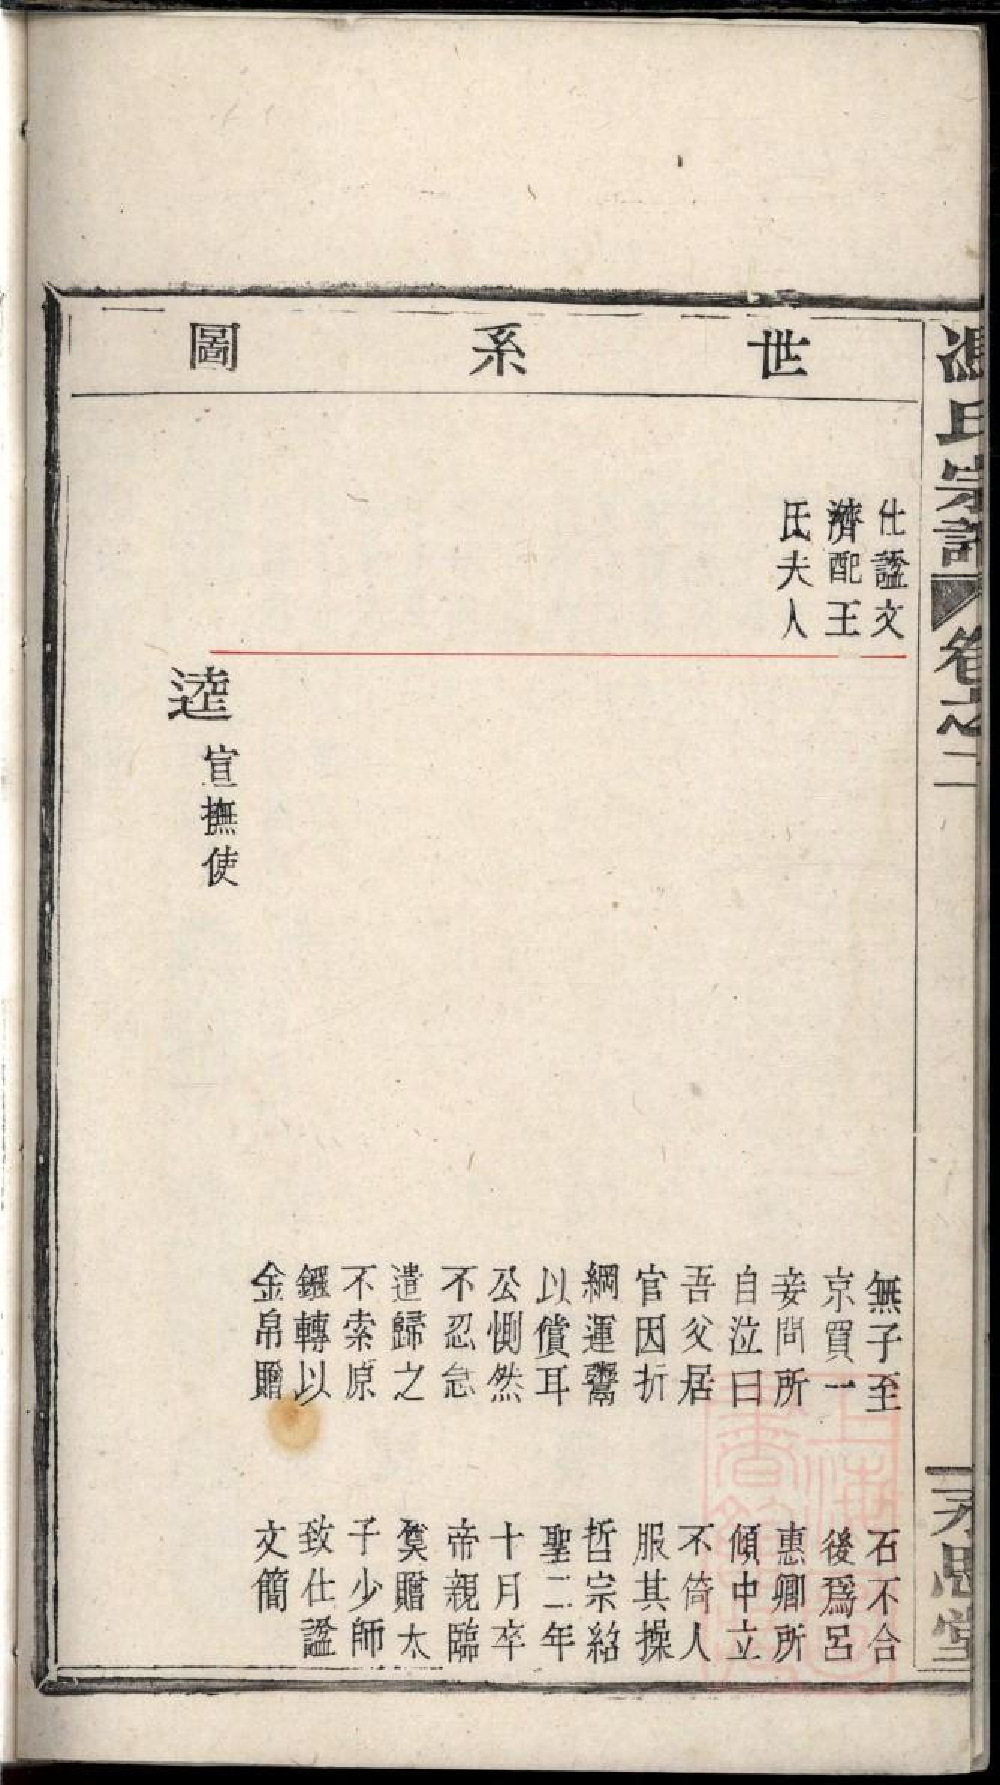 馮氏宗譜
卷之二
世系圖
仕諡文
濟配王
氏夫人
逵
宣撫使
無子至
京買一
妾問所
自泣曰
吾父居
官因折
綱運鬻
以償耳
公惻然
不忍急
遣歸之
不索原
鏹轉以
金帛贈
石不合
後爲呂
惠卿所
傾中立
不倚人
服其操
哲宗紹
聖二年
十月卒
帝親臨
奠贈太
子少師
致仕諡
文簡
思堂